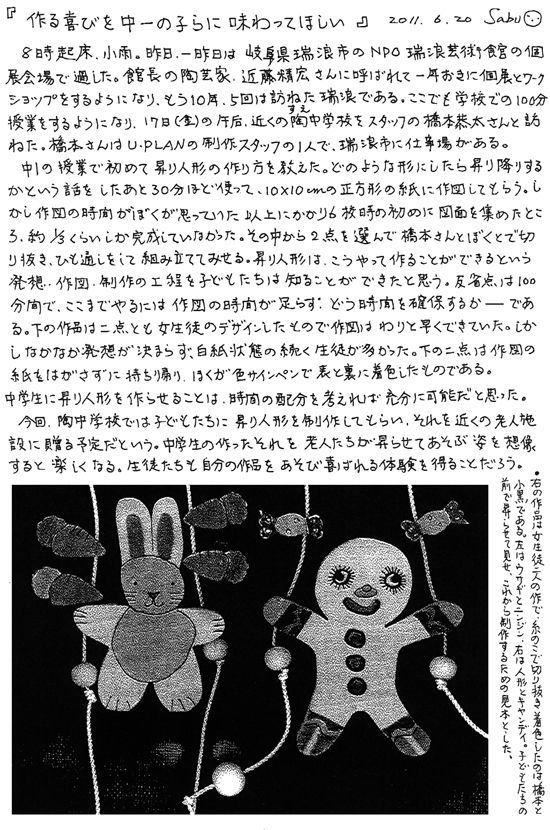 『作る喜びを中一の子らに味わってほしい』 2011.6.20 Sabu
8時起床、小雨。昨日、一昨日は岐阜県瑞浪市のNPO瑞浪芸術館の個
展会場で過した。館長の陶芸家、近藤精宏さんに呼ばれて一年おきに個展とワーク
ショップをするようになり、もう10年、5回は訪ねた瑞浪である。ここでも学校での100分
授業をするようになり、17日(金)の午后、近くの陶中学校をスタッフの橋本恭太さんと訪
すえ
ねた。橋本さんはU.PLANの制作スタッフの1人で、瑞浪市に仕事場がある。
中1の授業で初めて昇り人形の作り方を教えた。どのような形にしたら昇り降りする
かという話をしたあと30分ほど使って、10×10cmの正方形の紙に作図してもらう。し
かし作図の時間がぼくが思っていた以上にかかり6校時の初めに図面を集めたとこ
ろ、約1/3くらいしか完成していなかった。その中から2点を選んで橋本さんとぼくとで切
り抜き、ひも通しをして組み立ててみせる。昇り人形は、こうやって作ることができるという
発想、作図、制作の工程を子どもたちは知ることができたと思う。反省点は100
分間で、ここまでやるには作図の時間が足らず、どう時間を確保するか──であ
る。下の作品は二点とも女生徒のデザインしたもので作図はわりと早くできていた。しか
しなかなか発想が決まらず、白紙状態の続く生徒が多かった。下の二点は作図の
紙をはがさずに持ち帰り、ぼくが色サインペンで表と裏に着色したものである。
中学生に昇り人形を作らせることは、時間の配分を考えれば充分に可能だと思った。
今回、陶中学校では子どもたちに昇り人形を制作してもらい、それを近くの老人施
設に贈る予定だという。中学生の作ったそれを老人たちが昇らせてあそぶ姿を想像
すると楽しくなる。生徒たちも自分の作品をあそび喜ばれる体験を得ることだろう。
●右の作品は女生徒二人の作で、糸のこで切り抜き着色したのは橋本と
小黒である。左はウサギとニンジン、右は人形とキャンディ。子どもたちの
前で昇らせて見せ、これから制作するための見本とした。